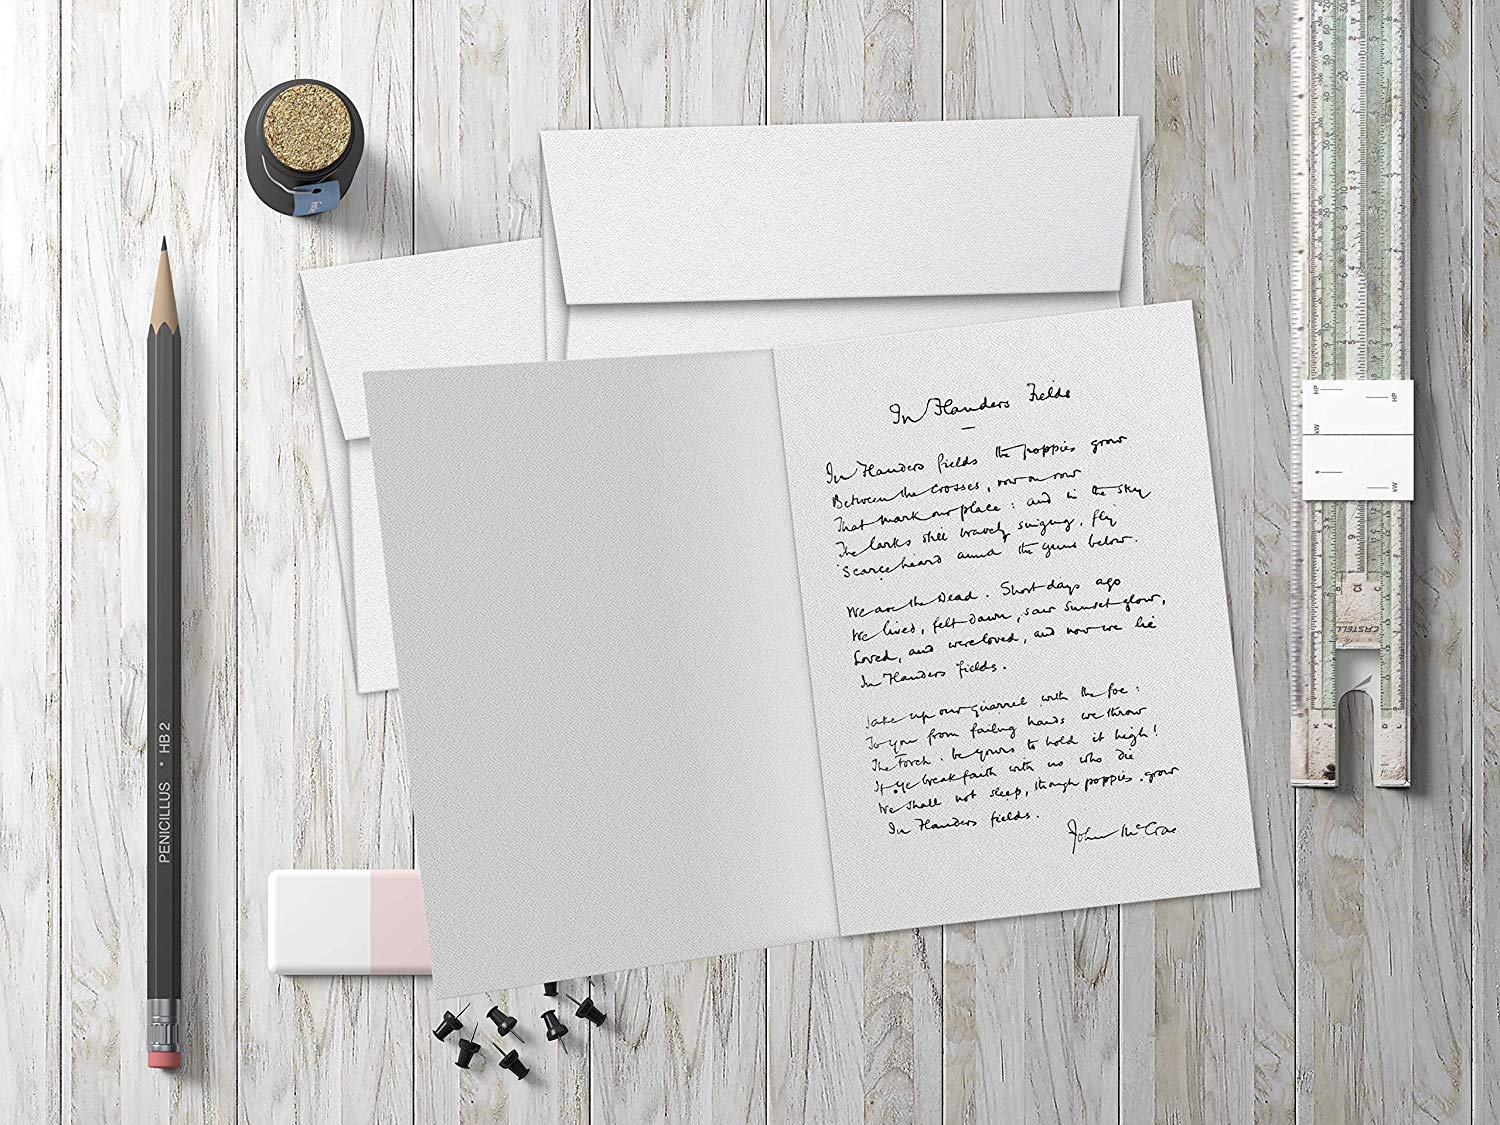 In Flanders Fields
In Flanders fields the poppies grow
Between the crosses, row on row
That mark our place: and in the sky
The larks still bravely singing, fly
Scarce heard amid the guns below.
We are the Dead. Short days ago
We lived, felt dawn, saw sunset glow,
Loved, and were loved, and now we lie
In Flanders fields.
Take up our quarrel with the foe:
To you from failing hands we throw
The torch. be yours to hold it high!
If ye break faith with us who die
We shall not sleep, though poppies grow
In Flanders fields.
John McCrae
PENICILLUS * HB 2
HP
HP
kW
s
kW
CASTELL
K
Z
D
L